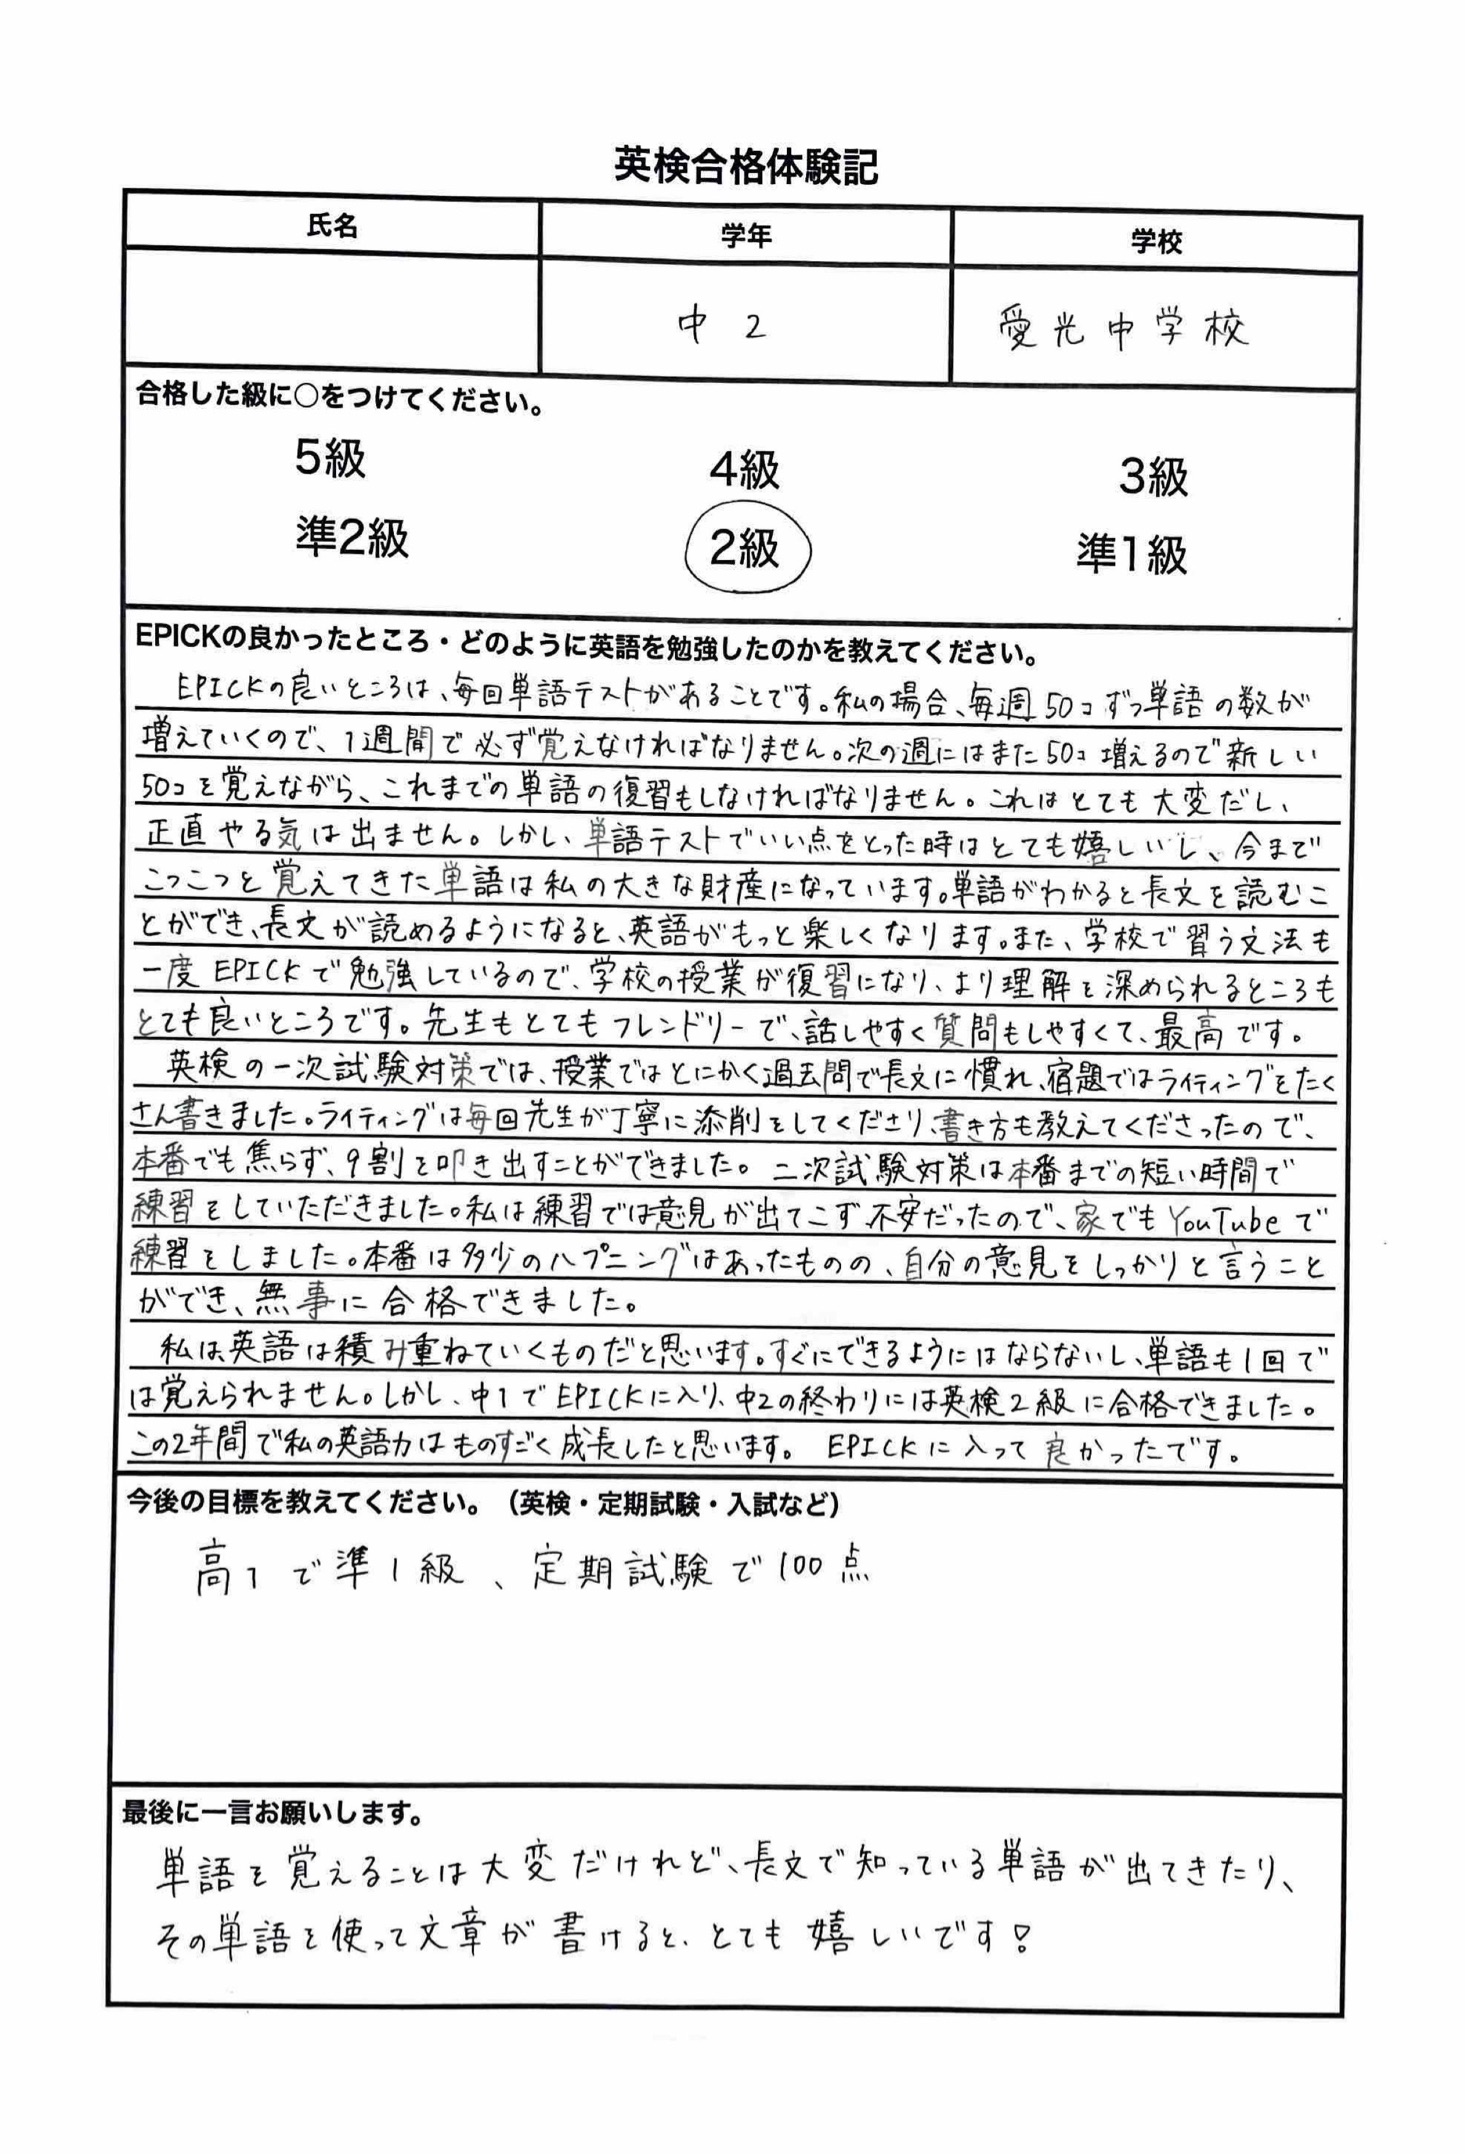 英検合格体験記
氏名 学年 学校
中2 愛光中学校
合格した級に○をつけてください。
5級 4級 3級
準2級 2級 準1級
EPICKの良かったところ・どのように英語を勉強したのかを教えてください。
EPICKの良いところは、毎回単語テストがあることです。私の場合、毎週50コずつ単語の数が
増えていくので、1週間で必ず覚えなければなりません。次の週にはまた50コ増えるので新しい
50コを覚えながら、これまでの単語の復習もしなければなりません。これはとても大変だし、
正直やる気は出ません。しかし、単語テストでいい点をとった時はとても嬉しいし、今まで
こつこつと覚えてきた単語は私の大きな財産になっています。単語がわかると長文を読むこ
とができ、長文が読めるようになると、英語がもっと楽しくなります。また、学校で習う文法も
一度EPICKで勉強しているので、学校の授業が復習になり、より理解を深められるところも
とても良いところです。先生もとてもフレンドリーで、話しやすく質問もしやすくて、最高です。
英検の一次試験対策では、授業ではとにかく過去問で長文に慣れ、宿題ではライティングをたく
さん書きました。ライティングは毎回先生が丁寧に添削をしてくださり、書き方も教えてくださったので、
本番でも焦らず、9割を叩き出すことができました。二次試験対策は本番までの短い時間で
練習をしていただきました。私は練習では意見が出てこず不安だったので、家でもYouTubeで
練習をしました。本番は多少のハプニングはあったものの、自分の意見をしっかりと言うこと
ができ、無事に合格できました。
私は、英語は積み重ねていくものだと思います。すぐにできるようにはならないし、単語も1回で
は覚えられません。しかし、中1でEPICKに入り、中2の終わりには英検2級に合格できました。
この2年間で私の英語力はものすごく成長したと思います。EPICKに入って良かったです。
今後の目標を教えてください。（英検・定期試験・入試など）
高1で準1級、定期試験で100点
最後に一言お願いします。
単語を覚えることは大変だけれど、長文で知っている単語が出てきたり、
その単語を使って文章が書けると、とても嬉しいです!